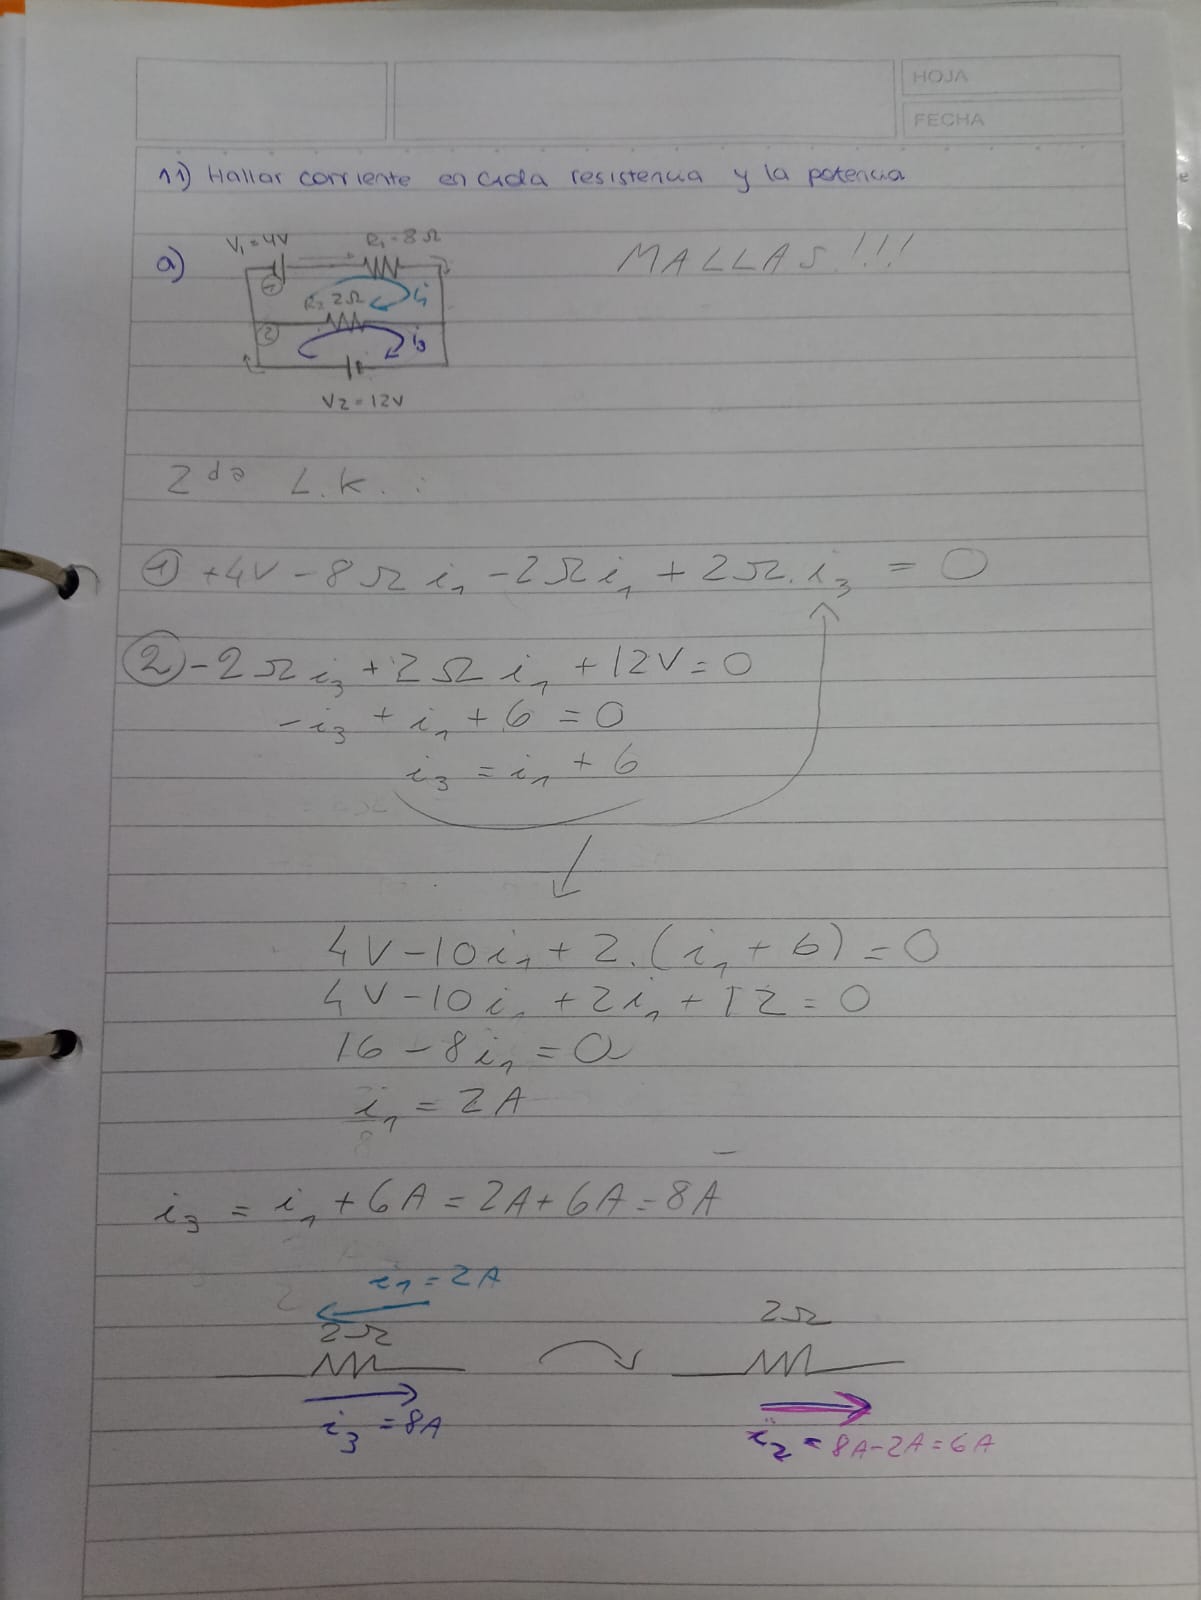 HOJA
FECHA
11) Hallar corriente en cada resistencia y la potencia
a)
V₁=4V
R₁=8Ω
MALLAS!!!
1
R₂ 2Ω
i₁
2
i₃
V2=12V
2da L.K.:
① +4V-8Ω i₁ -2Ω i₁ + 2Ω.i₃ = 0
② -2Ω i₃ +2Ω i₁ +12V=0
-i₃ + i₁ + 6 = 0
i₃ = i₁ + 6
4V-10i₁ + 2.(i₁ + 6) = 0
4V-10i₁ +2i₁ +12=0
16 - 8i₁ = 0
i₁ = 2A
8
i₃ = i₁ + 6A = 2A+6A=8A
i₁=2A
2Ω
2Ω
i₃ =8A
i₂ = 8A-2A=6A